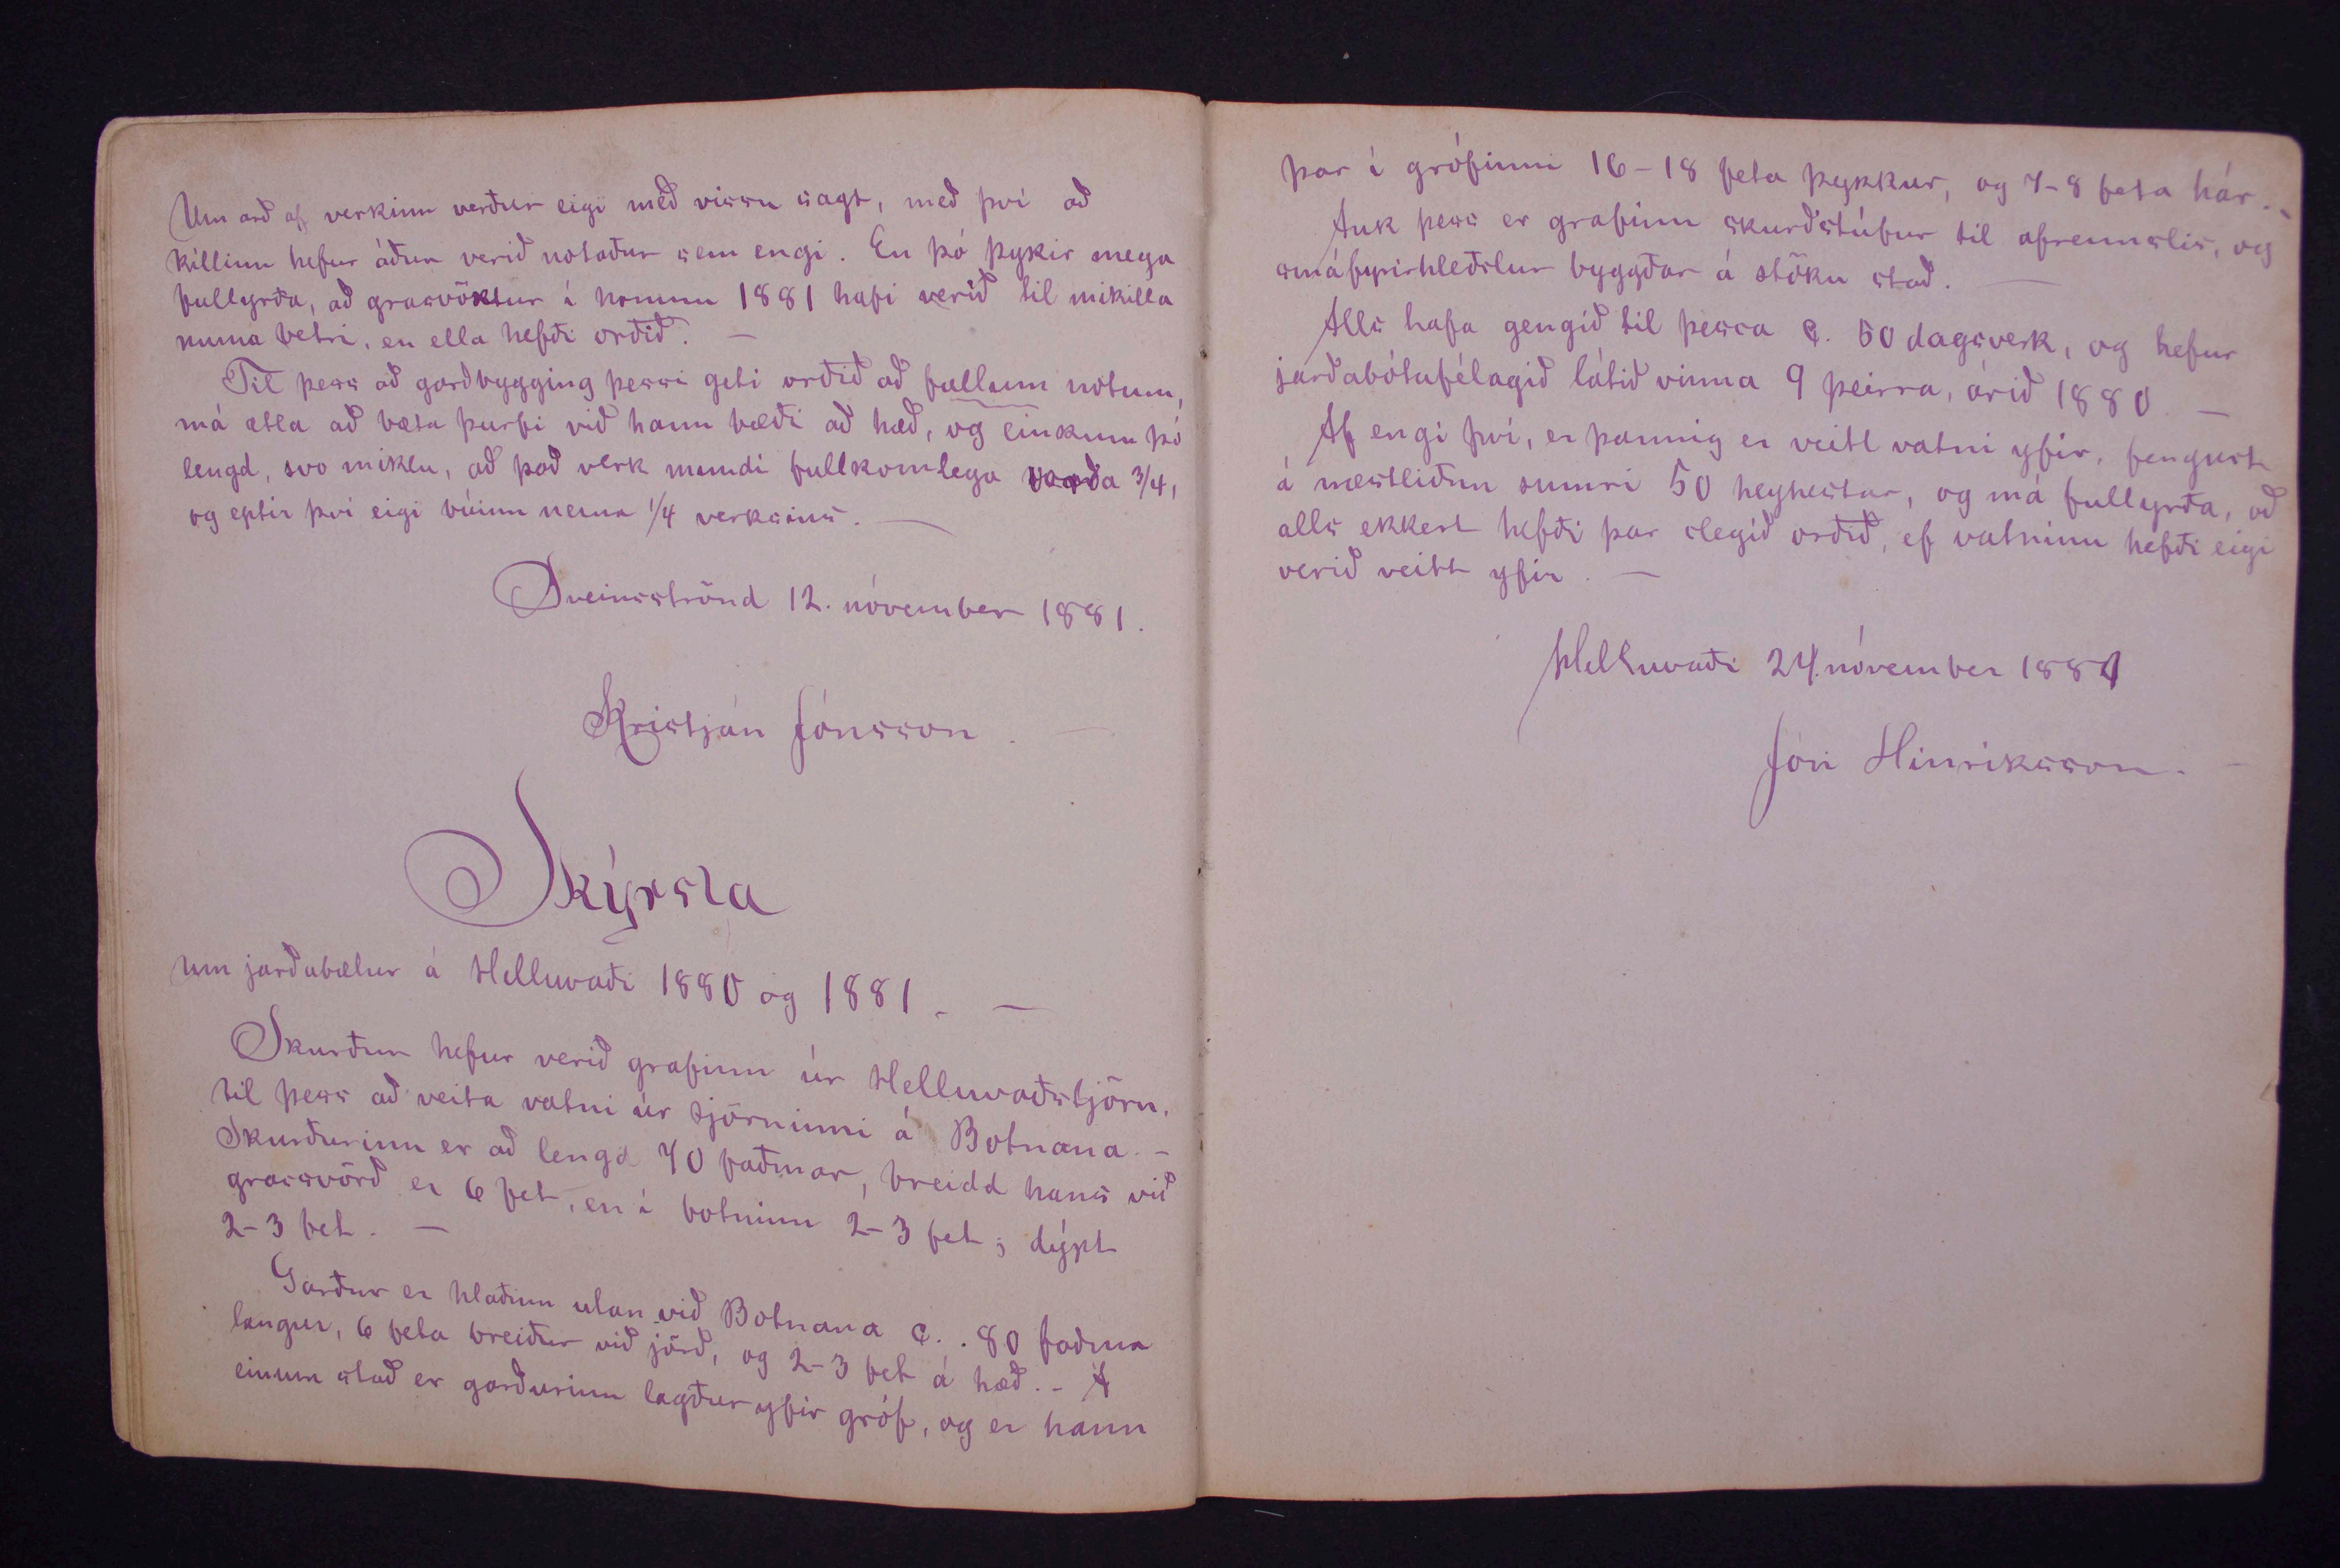 Um arð af verkinu verður eigi með vissu sagt, með því að
kíllinn hefur áður verið notaður sem engi. En þó þykir mega
fullyrða, að grasvöxtur í honum 1881 hafi verið til mikilla
muna betri, en ella hefði orðið. —
Til þess að garðbygging þessi geti orðið að fullum notum,
má ætla að bæta þurfi við hann bæði að hæð, og einkum þó
lengd, svo miklu, að það verk mundi fullkomlega varða 3/4,
og eptir því eigi búinn nema 1/4 verksins. —
Sveinsströnd 12. nóvember 1881.
Kristján Jónsson. —
Skýrsla
um jarðabætur á Helluvaði 1880 og 1881. —
Skurður hefur verið grafinn úr Helluvaðstjörn,
til þess að veita vatni úr tjörninni á Botnana. -
Skurðurinn er að lengd 70 faðmar, breidd hans við
grassvörð er 6 fet, en í botninn 2-3 fet; dýpt
2-3 fet. —
Garður er hlaðinn utan við Botnana c. 80 faðma
langur, 6 feta breiður við jörð, og 2-3 fet á hæð. - Á
einum stað er garðurinn lagður yfir gróf, og er hann
þar í grófinni 16-18 feta þykkur, og 7-8 feta hár. -
Auk þess er grafinn skurðstúfur til afrennslis, og
smáfyrirhleðslur byggðar á stöku stað. —
Alls hafa gengið til þessa c. 50 dagsverk, og hefur
jarðabótafélagið látið vinna 9 þeirra, árið 1880. —
Af engi því, er þannig er veitt vatni yfir, fengust
á næstliðnu sumri 50 heyhestar, og má fullyrða, að
alls ekkert hefði þar slegið orðið, ef vatninu hefði eigi
verið veitt yfir. —
Helluvaði 24. nóvember 1881
Jón Hinriksson. -